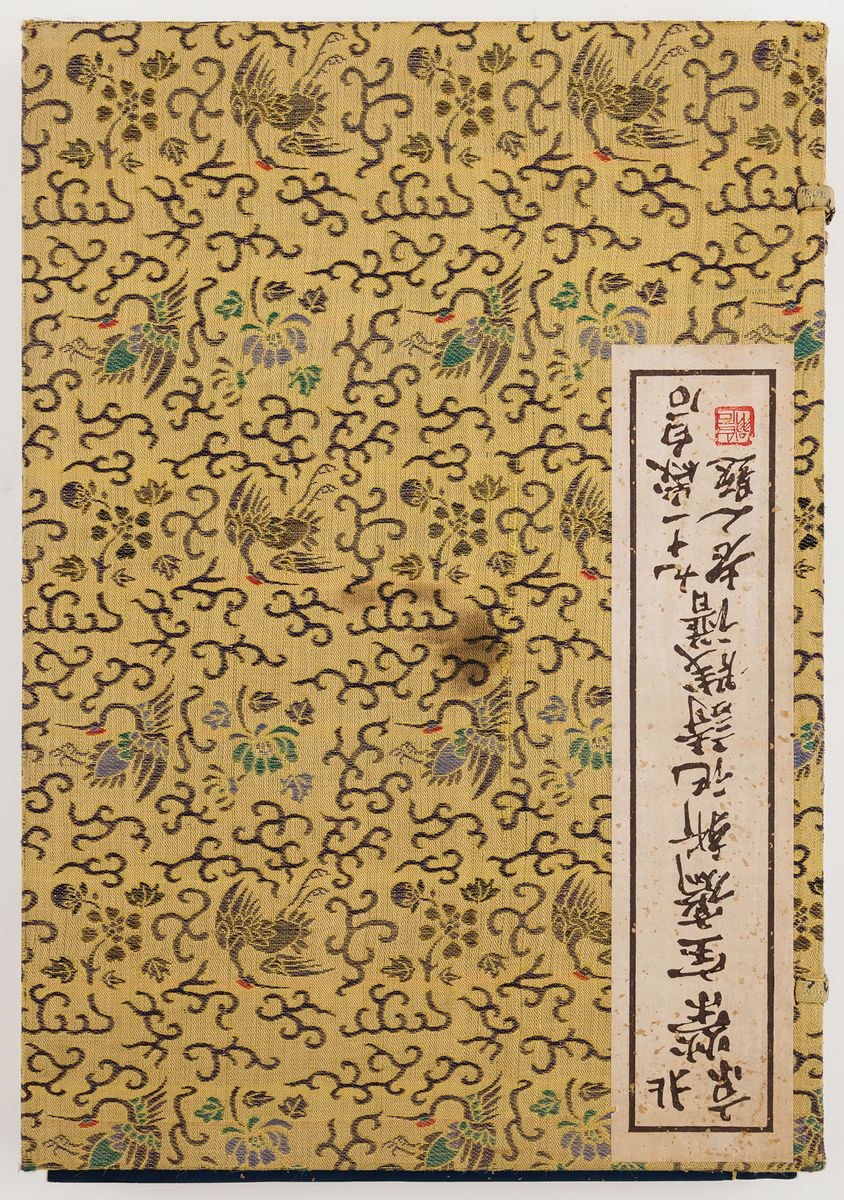 北京
榮宝齋新記詩箋譜
九十一歲白石
老人題